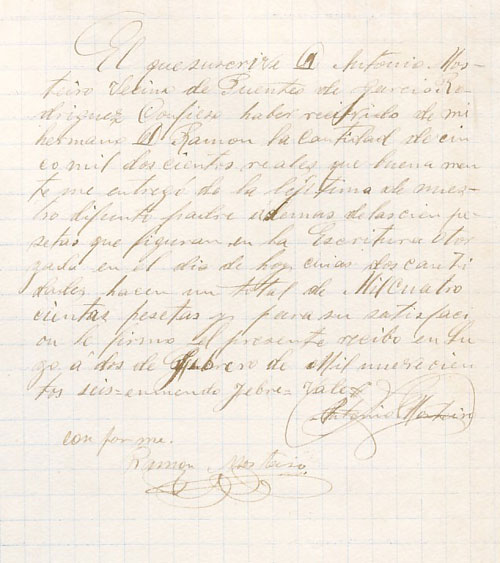 El que suscrive D Antonio Mos-
teiro Vecino de Puentes de Garcia Ro-
driguez Confieso haber recibido de mi
hermano D Ramon la cantidad de cin
co mil doscientos reales que buena men
te me entrego de la legitima de nues-
tro difunto padre ademas de las cien pe-
setas que figuran en la Escritura otor
gada en el dia de hoy cuias dos canti
dades hacen un total de Mil cuatro
cientas pesetas y para su satisfaci
on le firmo el presente recibo en Lu
go, á dos de Febrero de Mil nuevecien
tos seis=enmendo Febre=Vale
Antonio Mosteiro
conforme.
Ramon Mosteiro